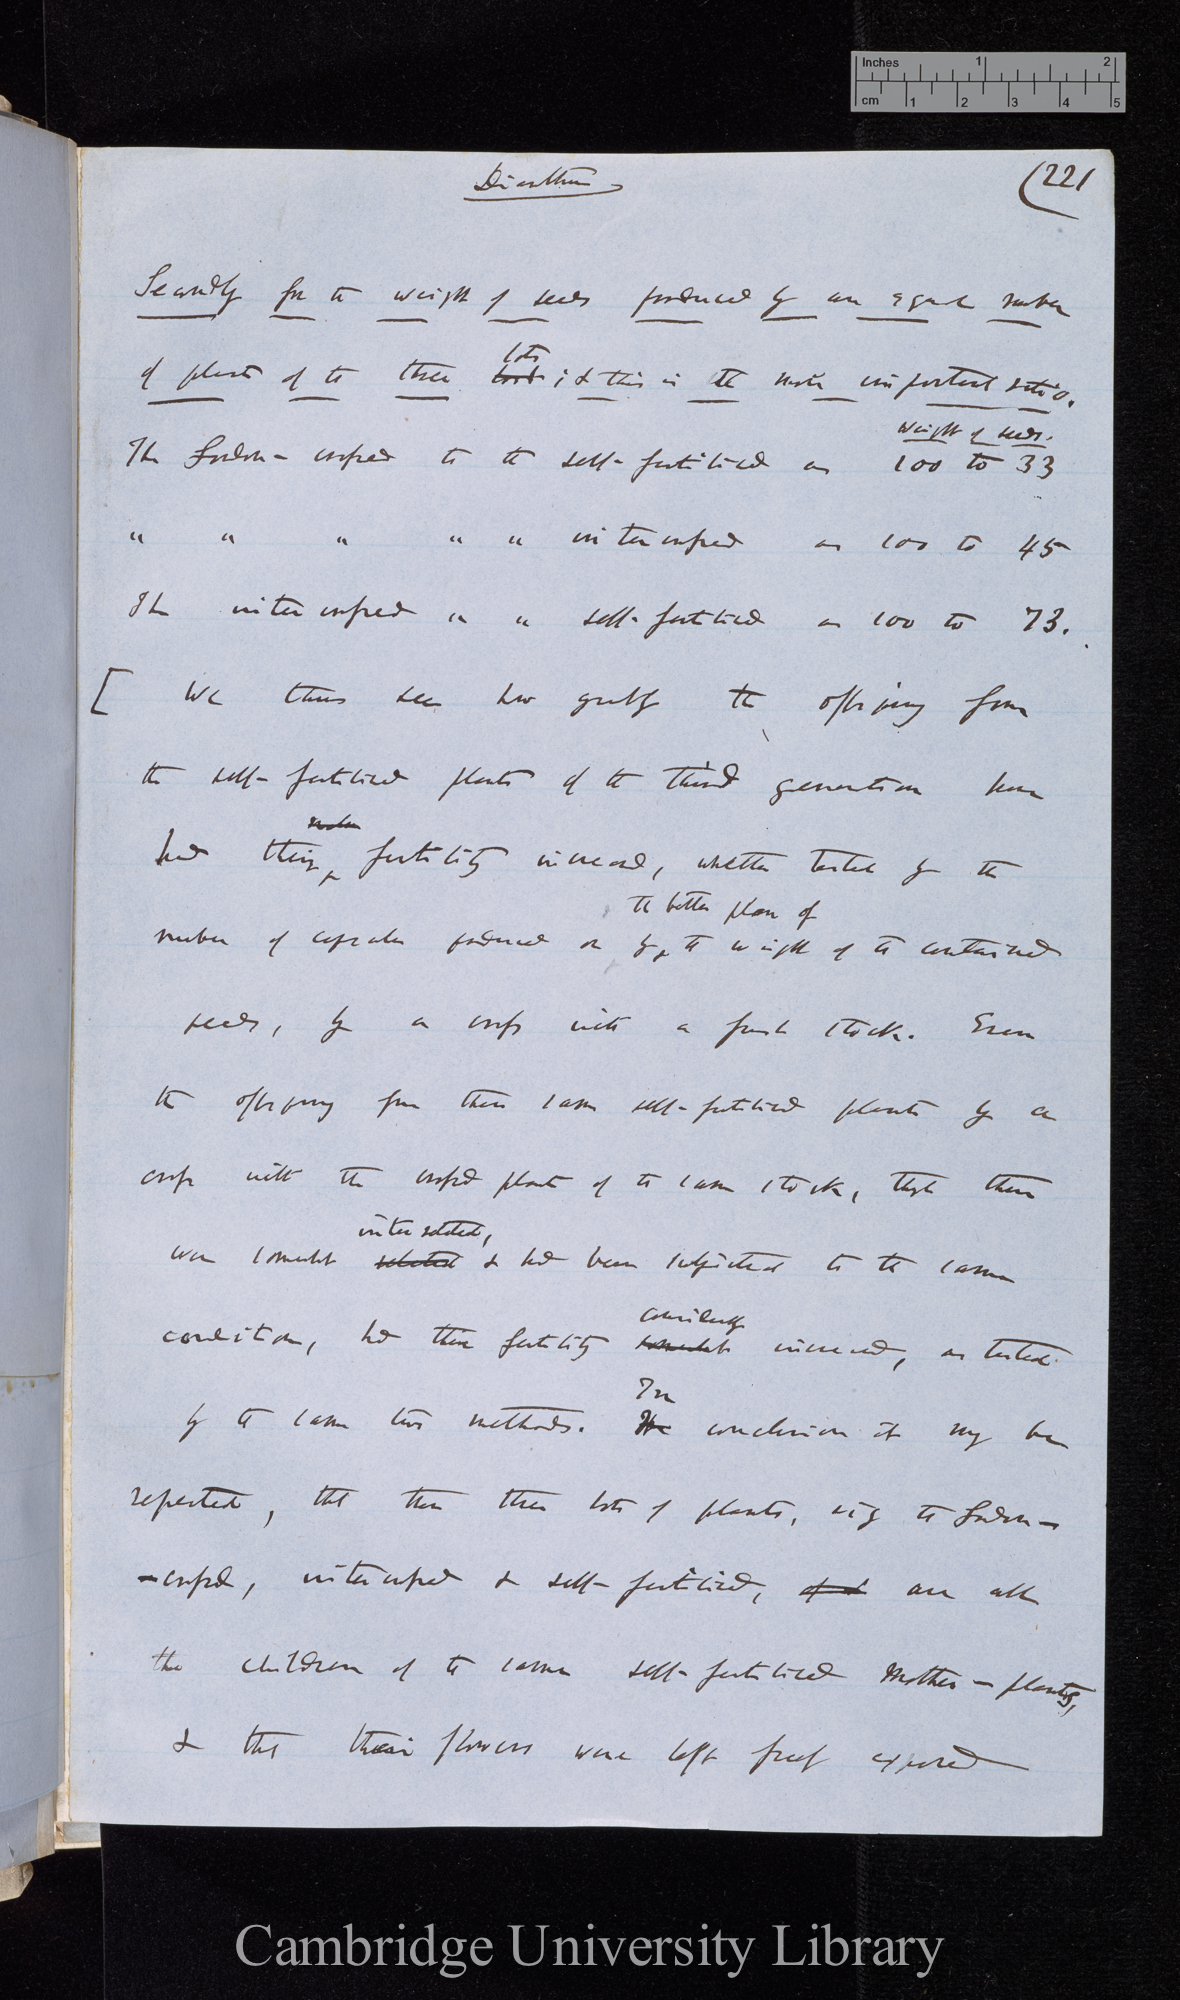 Inches 1 2
cm 1 2 3 4 5
Dianthus
(221
Secondly for the weight of seeds produced by an equal number
lots
of plants of the three ; & this is the more important ratio.
weight of seeds.
The London-crossed to the self-fertilised as 100 to 33
" " " " " intercrossed as 100 to 45
The intercrossed " " self-fertilised as 100 to 73.
[ We thus see how greatly the offspring from
the self-fertilised plants of the third generation have
had their fertility increased, whether tested by the
the better plan of
number of capsules produced or by the weight of the contained
seeds, by a cross with a fresh stock. Even
the offspring from these same self-fertilised plants by a
cross with the crossed plants of the same stock, though these
inter related,
were somewhat related & had been subjected to the same
considerably
conditions, had their fertility somewhat increased, as tested
In
by the same two methods. The conclusion it may be
repeated, that these three lots of plants, viz the London-
-crossed, intercrossed & self-fertilised, are all
the children of the same self-fertilised mother-plants,
& that their flowers were left freely exposed
Cambridge University Library